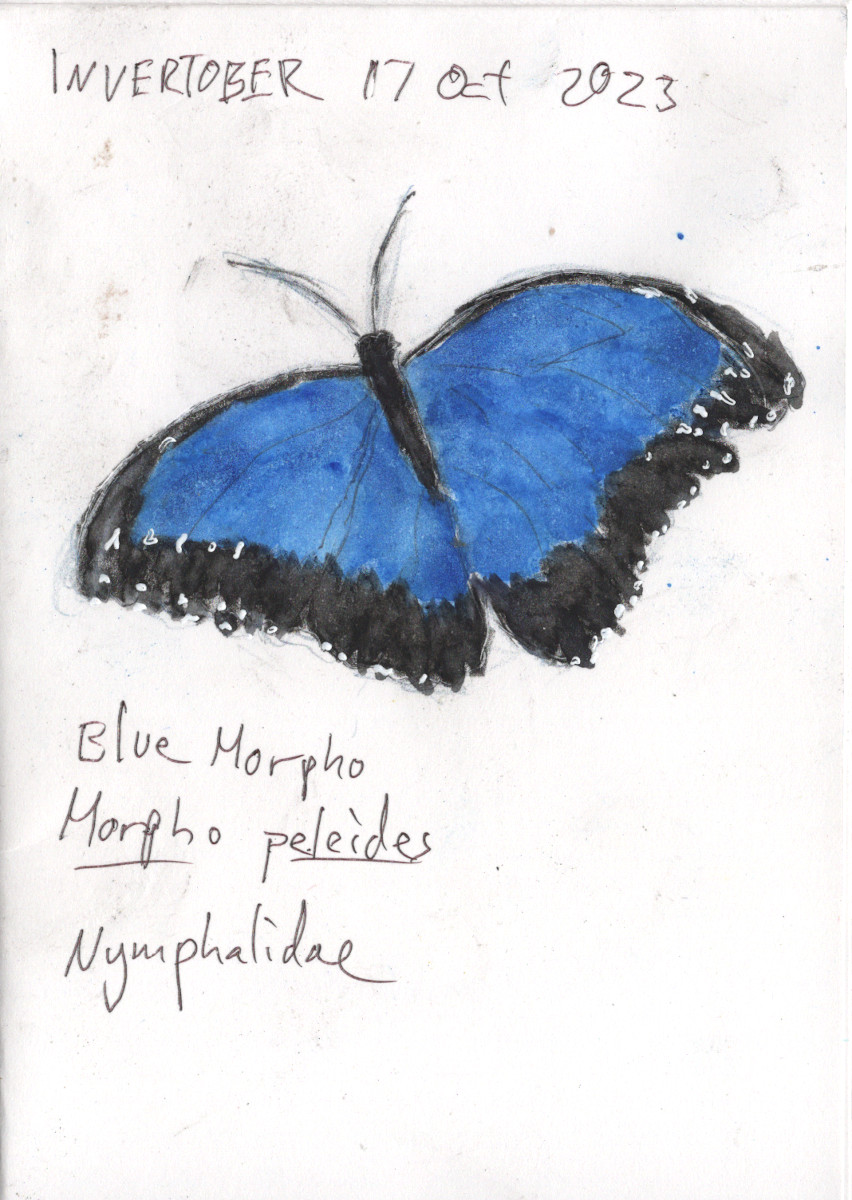 INVERTOBER 17 Oct 2023
Blue Morpho
Morpho peleides
Nymphalidae